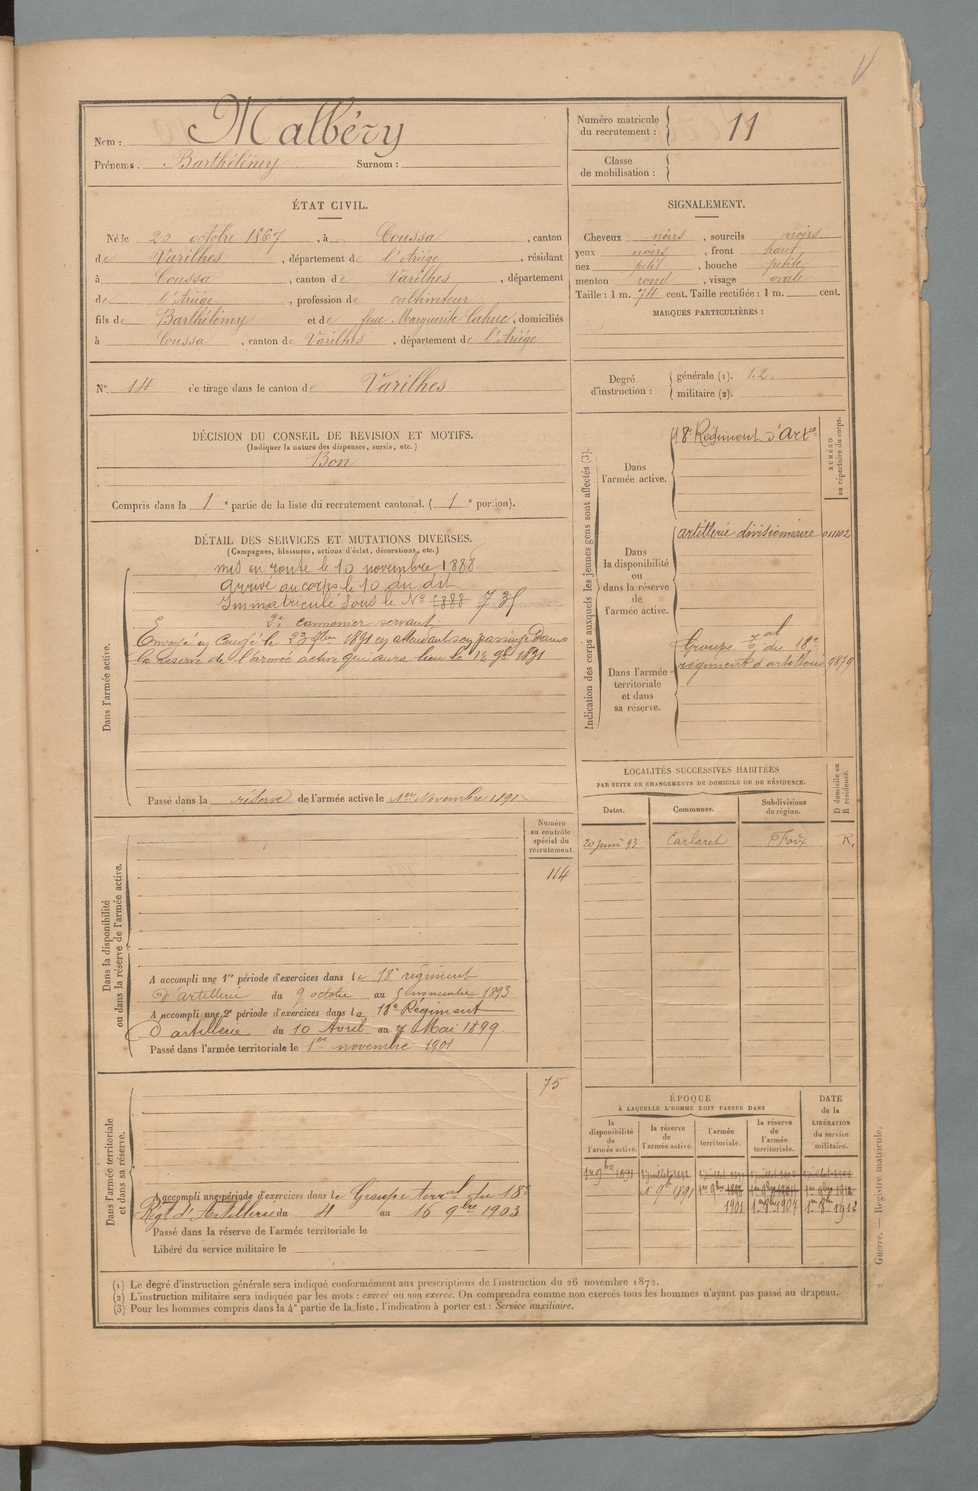 Nom : Malbéry
Prénoms. Barthélémy Surnom :
Numéro matricule du recrutement : 11
Classe de mobilisation :
ÉTAT CIVIL.
Né le 20 octobre 1867, à Coussa, canton
de Varilhes, département de l'Ariége, résidant
à Coussa, canton de Varilhes, département
de l'Ariége, profession de cultivateur
fils de Barthélémy et de feue Marguerite Cahuc, domiciliés
à Coussa, canton de Varilhes, département de l'Ariége
SIGNALEMENT.
Cheveux noirs, sourcils noirs
yeux noirs, front haut
nez petit, bouche petite
menton rond, visage ovale
Taille : 1 m. 74 cent. Taille rectifiée : 1 m. cent.
MARQUES PARTICULIÈRES :
N° 14 de tirage dans le canton de Varilhes
Degré d'instruction : générale (1). 1.2.
militaire (2).
DÉCISION DU CONSEIL DE REVISION ET MOTIFS.
(Indiquer la nature des dispenses, sursis, etc.)
Bon
Compris dans la 1e partie de la liste du recrutement cantonal. ( 1e portion).
DÉTAIL DES SERVICES ET MUTATIONS DIVERSES.
(Campagnes, blessures, actions d'éclat, décorations, etc.)
Dans l'armée active.
mis en route le 10 novembre 1888
Arrivé au corps le 10 du dit
Immatriculé sous le N° 1888 735
2e canonnier servant
Envoyé en congé le 23 7bre 1891 en attendant son passage dans
la réserve de l'armée active qui aura lieu le 1er 9bre 1891
Passé dans la réserve de l'armée active le 1er Novembre 1891
Indication des corps auxquels les jeunes gens sont affectés (3).
NUMÉRO au répertoire du corps.
Dans l'armée active.
18e Régiment d'Artie
Dans la disponibilité ou dans la réserve de l'armée active.
artillerie divisionnaire
Dans l'armée territoriale et dans sa réserve.
Groupe tal du 18e
régiment d'artillerie 9879
LOCALITÉS SUCCESSIVES HABITÉES
PAR SUITE DE CHANGEMENTS DE DOMICILE OU DE RÉSIDENCE.
Dates. Communes. Subdivisions de région. D domicile ou R résidence.
20 juin 93 Carlaret Foix R.
Dans la disponibilité ou dans la réserve de l'armée active.
Numéro au contrôle spécial du recrutement.
114
A accompli une 1re période d'exercices dans le 18e régiment
d'artillerie du 9 octobre au 5 novembre 1893
A accompli une 2e période d'exercices dans le 18e Régiment
d'artillerie du 10 Avril au 7 Mai 1899
Passé dans l'armée territoriale le 1er novembre 1901
Dans l'armée territoriale et dans sa réserve.
75
A accompli une période d'exercices dans le Groupe terral du 18e
Régt d'Artillerie du au 16 9bre 1903
Passé dans la réserve de l'armée territoriale le
Libéré du service militaire le
ÉPOQUE
À LAQUELLE L'HOMME DOIT PASSER DANS
DATE de la LIBÉRATION du service militaire.
la disponibilité de l'armée active. la réserve de l'armée active. l'armée territoriale. la réserve de l'armée territoriale.
1er 9bre 1891
1er 9bre 1891
1901
(1) Le degré d'instruction générale sera indiqué conformément aux prescriptions de l'instruction du 26 novembre 1872.
(2) L'instruction militaire sera indiquée par les mots : exercé ou non exercé. On comprendra comme non exercés tous les hommes n'ayant pas passé au drapeau.
(3) Pour les hommes compris dans la 4e partie de la liste, l'indication à porter est : Service auxiliaire.
Guerre. — Registre matricule.